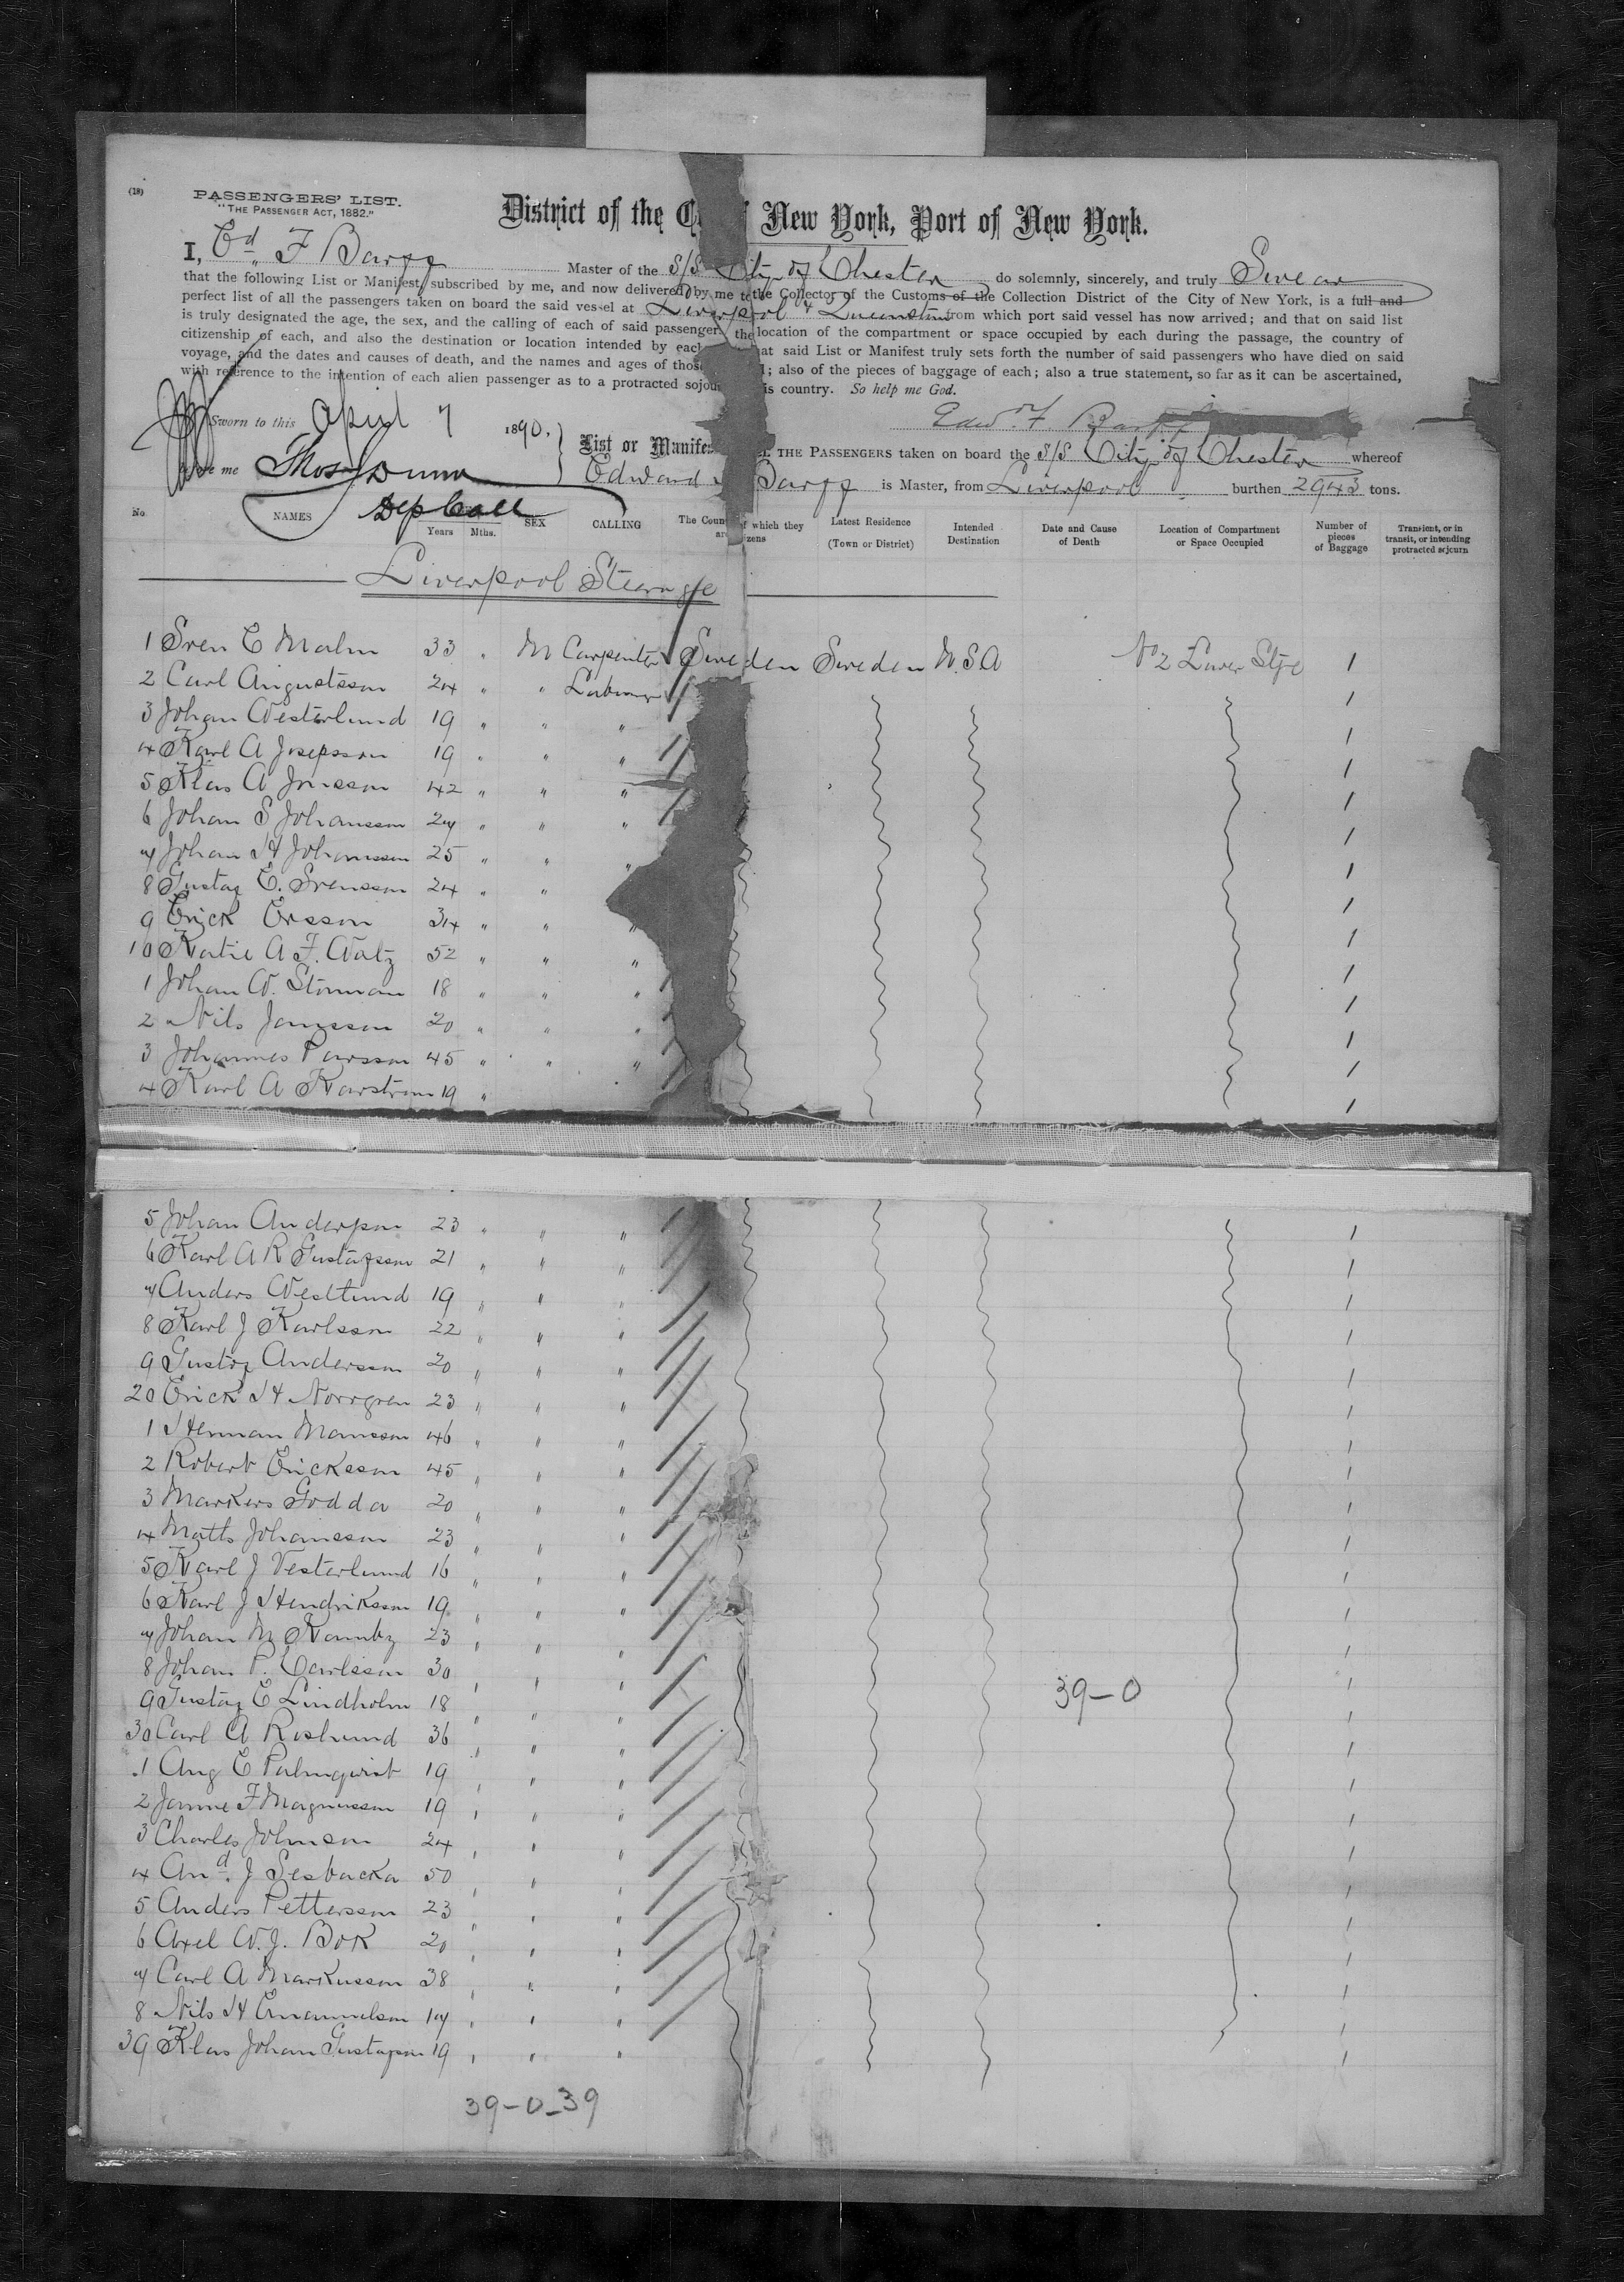 (18)
PASSENGERS' LIST.
"THE PASSENGER ACT, 1882."
District of the C New York, Port of New York.
I, Ed. F Barff Master of the S/S City of Chester do solemnly, sincerely, and truly Swear
that the following List or Manifest, subscribed by me, and now delivered by me to the Collector of the Customs of the Collection District of the City of New York, is a full and
perfect list of all the passengers taken on board the said vessel at Liverpool & Queenstown from which port said vessel has now arrived; and that on said list
is truly designated the age, the sex, and the calling of each of said passengers the location of the compartment or space occupied by each during the passage, the country of
citizenship of each, and also the destination or location intended by each at said List or Manifest truly sets forth the number of said passengers who have died on said
voyage, and the dates and causes of death, and the names and ages of those ; also of the pieces of baggage of each; also a true statement, so far as it can be ascertained,
with reference to the intention of each alien passenger as to a protracted sojou is country. So help me God.
Edwd. F. Barff
Sworn to this April 7 1890,
before me Thos Dunn
Dep Coll
List or Manifes THE PASSENGERS taken on board the S/S City of Chester whereof
Edward Barff is Master, from Liverpool burthen 2943 tons.
No. NAMES Years Mths. SEX CALLING The Coun of which they are izens Latest Residence (Town or District) Intended Destination Date and Cause of Death Location of Compartment or Space Occupied Number of pieces of Baggage Transient, or in transit, or intending protracted sojourn
Liverpool Steerage
1 Sven E Malm 33 " M Carpenter Sweden Sweden U.S.A No 2 Lower Stge 1
2 Carl Augustsson 24 " " Labourer 1
3 Johan Westerlund 19 " " " 1
4 Karl A Josepsson 19 " " " 1
5 Klas A Jonsson 42 " " " 1
6 Johan S Johansson 27 " " " 1
7 Johan H Johansson 25 " " " 1
8 Gustaf E. Svensson 24 " " 1
9 Erick Ersson 34 " " " 1
10 Katie A F. Watz 52 " " " 1
1 Johan W. Storman 18 " " " 1
2 Nils Jonsson 20 " " " 1
3 Johannes Parsson 45 " " " 1
4 Karl A Karstrom 19 " 1
5 Johan Anderson 23 " " " 1
6 Karl A R Gustafsson 21 " " " 1
7 Anders Westlund 19 " " " 1
8 Karl J Karlsson 22 " " " 1
9 Gustaf Andersson 20 " " " 1
20 Erick H Norrgren 23 " " " 1
1 Herman Mansson 46 " " " 1
2 Robert Ericksson 45 " " " 1
3 Markers Godda 20 " " " 1
4 Matts Johansson 23 " " " 1
5 Karl J Vesterlund 16 " " " 1
6 Karl J Hendriksson 19 " " " 1
7 Johan M Kamby 23 " " " 1
8 Johan P. Carlsson 30 " " " 1
9 Gustaf E Lindholm 18 " " " 39-0 1
30 Carl A Roslund 36 " " " 1
1 Aug E Palmqwist 19 " " " 1
2 Janne F Magnusson 19 " " " 1
3 Charles Johnson 24 " " " 1
4 And. J Sesbacka 50 " " " 1
5 Anders Pettersson 23 " " " 1
6 Axel W. J. Bok 20 " " " 1
7 Carl A Markusson 38 " " " 1
8 Nils H Emanuelson 17 " " " 1
39 Klas Johan Gustafson 19 " " " 1
39-0-39